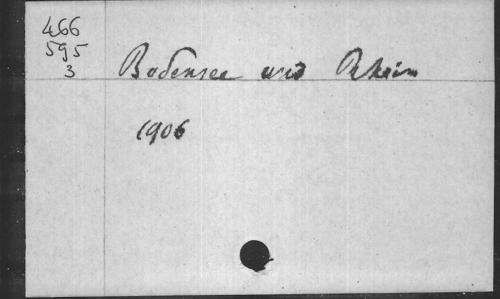 466
595
3
Bodensee und Rhein
1906